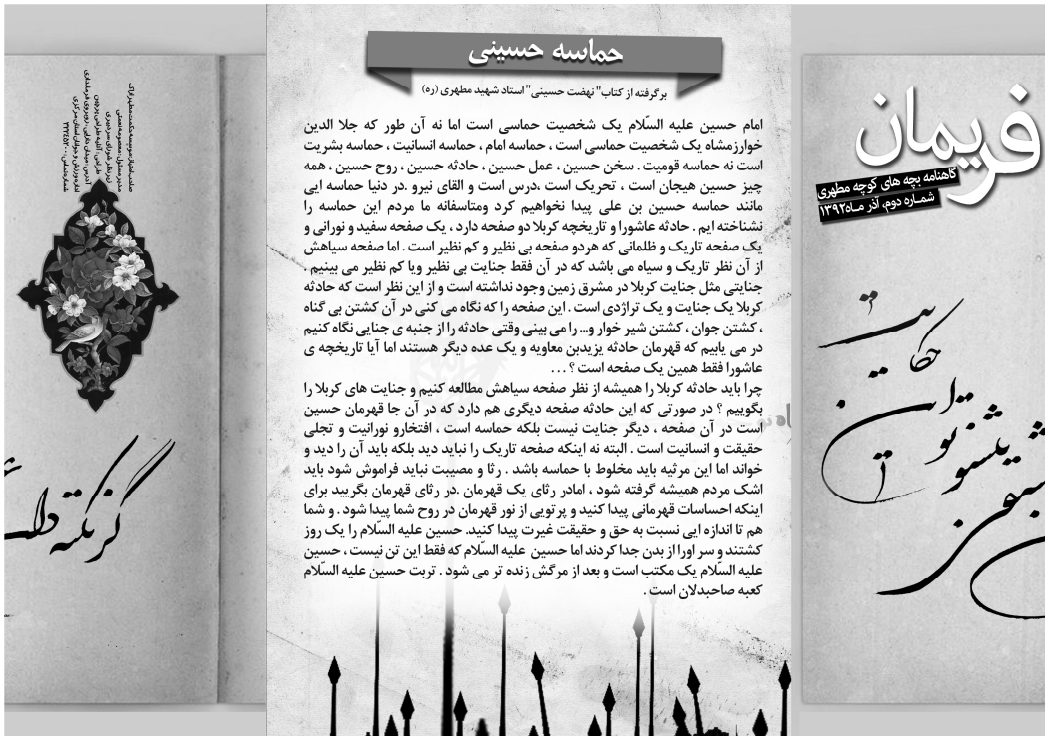 حماسه حسینی
برگرفته از کتاب" نهضت حسینی" استاد شهید مطهری (ره)
امام حسین علیه السّلام یک شخصیت حماسی است اما نه آن طور که جلا الدین
خوارزمشاه یک شخصیت حماسی است ، حماسه امام ، حماسه انسانیت ، حماسه بشریت
است نه حماسه قومیت . سخن حسین ، عمل حسین ، حادثه حسین ، روح حسین ، همه
چیز حسین هیجان است ، تحریک است ،درس است و القای نیرو .در دنیا حماسه ایی
مانند حماسه حسین بن علی پیدا نخواهیم کرد ومتاسفانه ما مردم این حماسه را
نشناخته ایم . حادثه عاشورا و تاریخچه کربلا دو صفحه دارد ، یک صفحه سفید و نورانی و
یک صفحه تاریک و ظلمانی که هردو صفحه بی نظیر و کم نظیر است . اما صفحه سیاهش
از آن نظر تاریک و سیاه می باشد که در آن فقط جنایت بی نظیر ویا کم نظیر می بینیم .
جنایتی مثل جنایت کربلا در مشرق زمین وجود نداشته است و از این نظر است که حادثه
کربلا یک جنایت و یک تراژدی است . این صفحه را که نگاه می کنی در آن کشتن بی گناه
، کشتن جوان ، کشتن شیر خوار و... را می بینی وقتی حادثه را از جنبه ی جنایی نگاه کنیم
در می یابیم که قهرمان حادثه یزیدبن معاویه و یک عده دیگر هستند اما آیا تاریخچه ی
عاشورا فقط همین یک صفحه است ؟ ...
چرا باید حادثه کربلا را همیشه از نظر صفحه سیاهش مطالعه کنیم و جنایت های کربلا را
بگوییم ؟ در صورتی که این حادثه صفحه دیگری هم دارد که در آن جا قهرمان حسین
است در آن صفحه ، دیگر جنایت نیست بلکه حماسه است ، افتخارو نورانیت و تجلی
حقیقت و انسانیت است . البته نه اینکه صفحه تاریک را نباید دید بلکه باید آن را دید و
خواند اما این مرثیه باید مخلوط با حماسه باشد . رثا و مصیبت نباید فراموش شود باید
اشک مردم همیشه گرفته شود ، امادر رثای یک قهرمان .در رثای قهرمان بگریید برای
اینکه احساسات قهرمانی پیدا کنید و پرتویی از نور قهرمان در روح شما پیدا شود . و شما
هم تا اندازه ایی نسبت به حق و حقیقت غیرت پیدا کنید. حسین علیه السّلام را یک روز
کشتند و سر اورا از بدن جدا کردند اما حسین علیه السّلام که فقط این تن نیست ، حسین
علیه السّلام یک مکتب است و بعد از مرگش زنده تر می شود . تربت حسین علیه السّلام
کعبه صاحبدلان است .
فریمان
گاهنامه بچه های کوچه مطهری
شمـاره دوم، آذر مـاه۱۳۹۲
حکایت
این
تو
بشنو
عشق
صاحب امتیاز:موسسه حکمت مطهر اراک
مدیر مسئول: معصومه نعمتی
زیر نظر شورای سردبیری